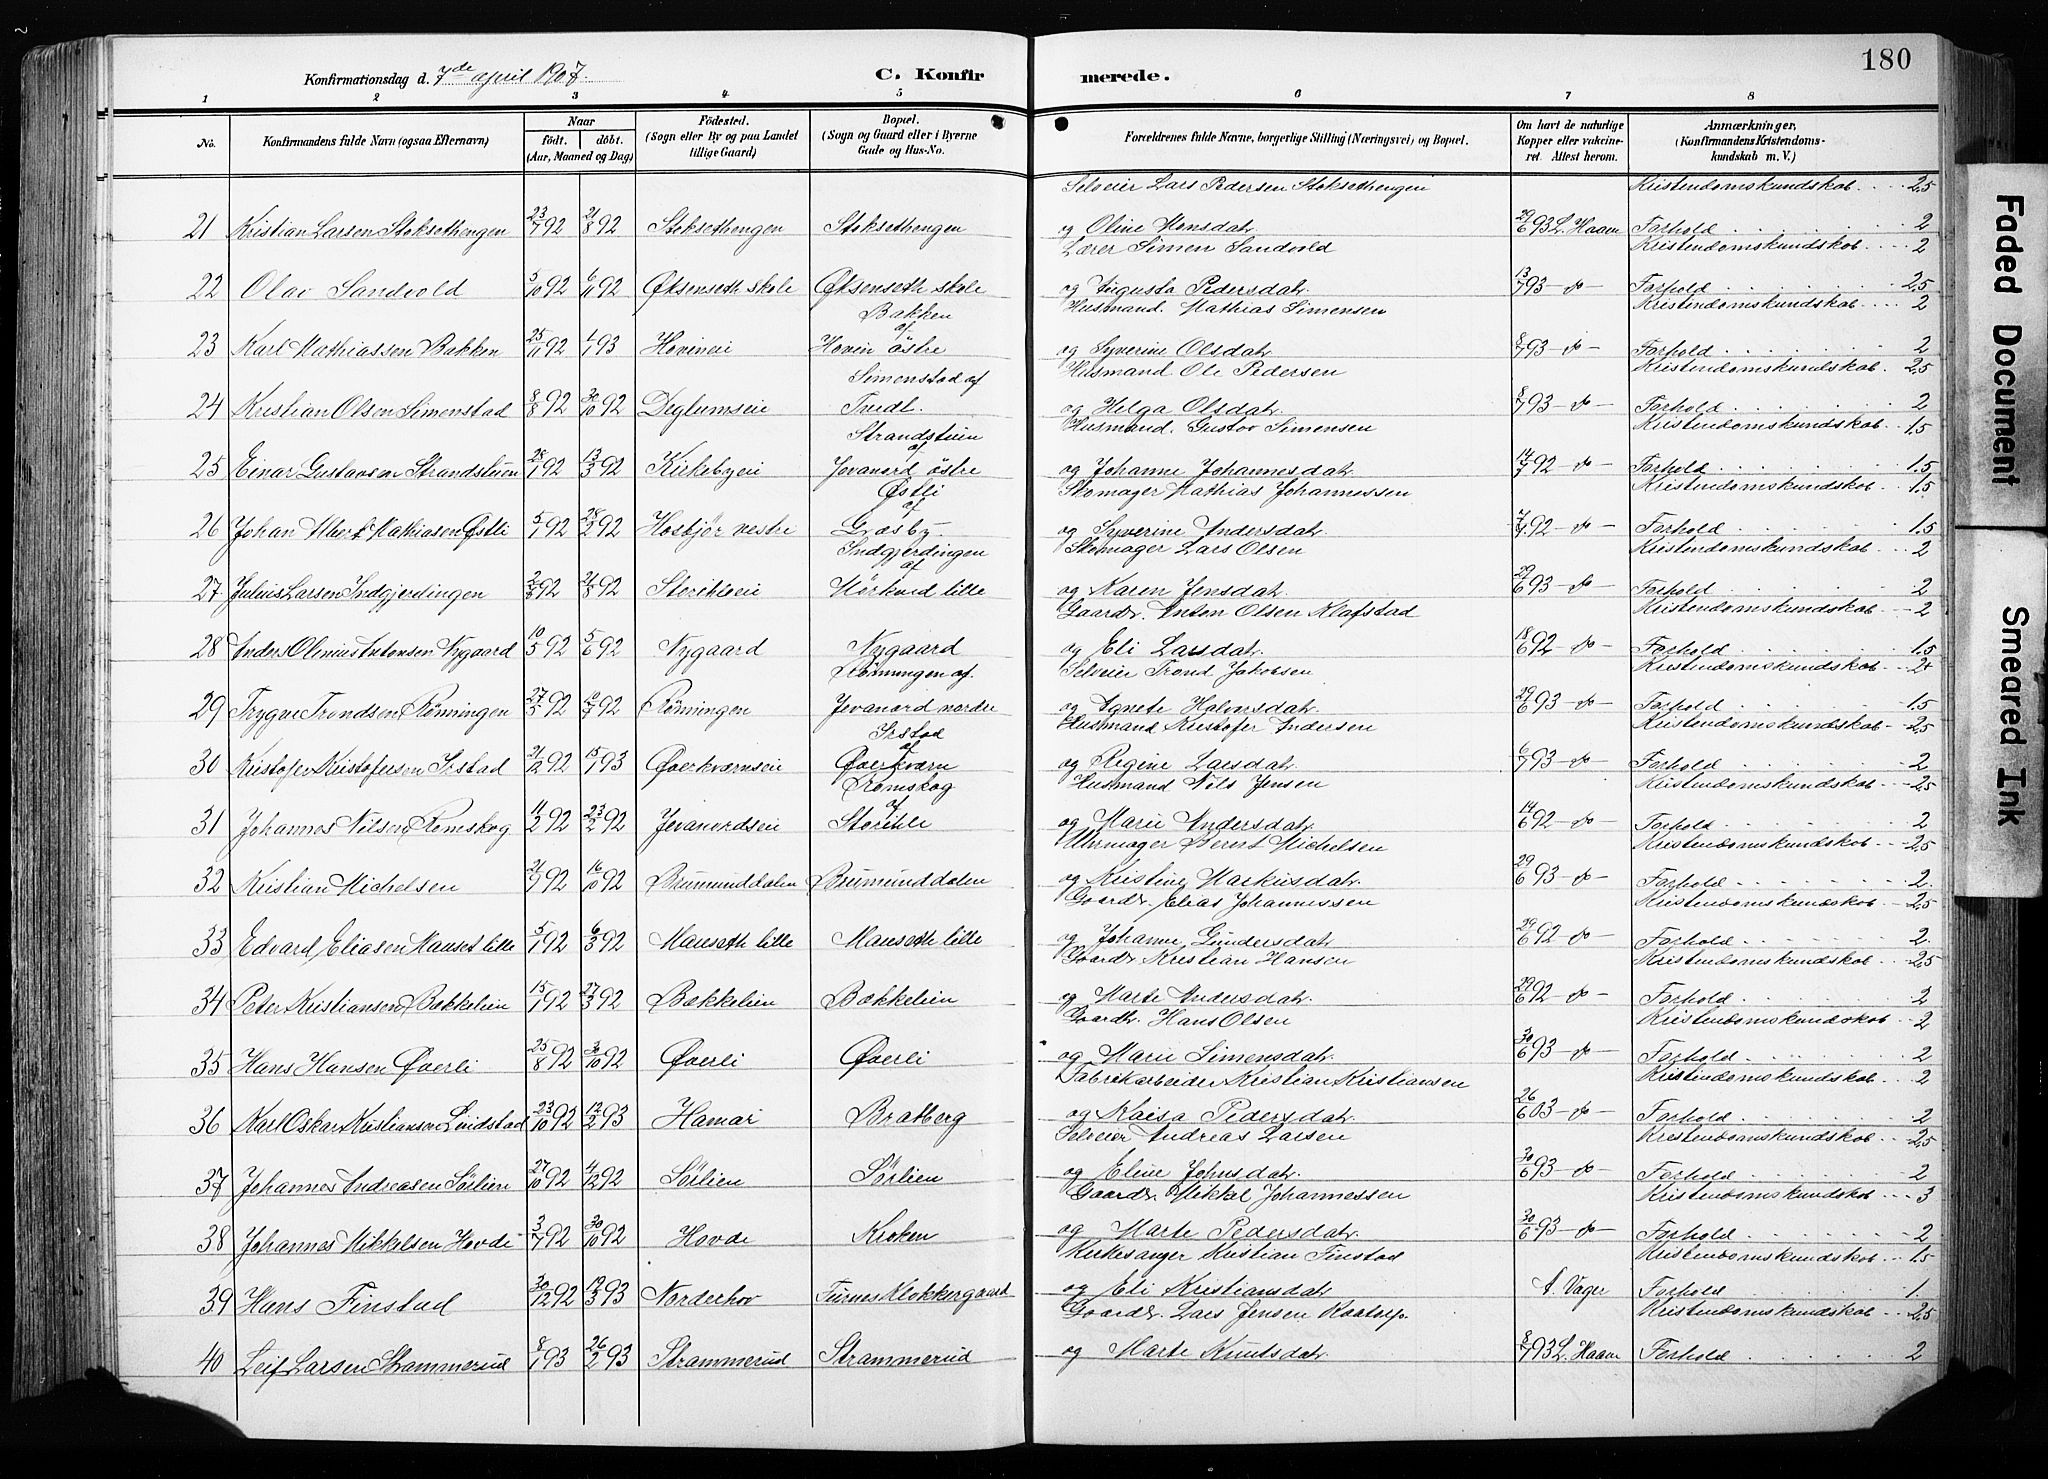 180
Konfirmationsdag d. 7de april 1907.
C. Konfirmerede.
1 2 3 4 5 6 7 8
No. Konfirmandens fulde Navn (ogsaa Efternavn) Naar født. døbt. (Aar, Maaned og Dag) Fødested. (Sogn eller By og paa Landet tillige Gaard) Bopæl. (Sogn og Gaard eller i Byerne Gade og Hus-No. Forældrenes fulde Navne, borgerlige Stilling (Næringsvei) og Bopæl. Om havt de naturlige Kopper eller vakcineret. Attest herom. Anmærkninger, (Konfirmandens Kristendomskundskab m. V.)
Selveier Lars Pedersen Stoksethengen Kristendomskundskab 2,5
21 Kristian Larsen Stoksethengen 23/7 92 21/8 92 Stoksethengen Stoksethengen og Oline Monsdatr 29/6 93 L. Haave Forhold 2
Lærer Simen Sandvold Kristendomskundskab 2
22 Olav Sandvold 5/10 92 6/11 92 Øksenseth skole Øksenseth skole og Augusta Pedersdatr 13/7 93 - do - Forhold 2,5
Bakken af Husmand. Mathias Simensen Kristendomskundskab. 2
23 Karl Mathiassen Bakken 25/11 92 1/1 93 Hovineie Hovin østre og Syverine Olsdatr 8/7 93 - do - Forhold 2
Simenstad af Husmand Ole Pedersen Kristendomskundskab. 2,5
24 Kristian Olsen Simenstad 8/8 92 30/10 92 Deglumseie Tvedt. og Helga Olsdatr. 8/7 93 - do - Forhold 2
Strandstuen af Husmand. Gustav Simensen Kristendomskundskab 1.5
25 Einar Gustavsen Strandstuen 28/1 92 13/3 92 Kirkebyeie Jevanord østre og Johanne Johannesdatr. 14/7 92 - do - Forhold 1.5
Østli af Skomager Mathias Johannessen Kristendomskundskab 1.5
26 Johan Mathiasen Østli 5/1 92 28/2 92 Hosbjør vestre Græsby og Syverine Andersdatr. 92 - do - Forhold 1.5
Indgjerdingen af Skomager Lars Olsen Kristendomskundskab 2
27 Julius Larsen Indgjerdingen 92 21/8 92 Storihleeie Mørkved lille og Karen Jensdatr. 29/6 93 - do - Forhold 2
Gaardr. Anton Olsen Klafstad Kristendomskundskab 2
28 Anders Olenius Antonsen Nygaard 10/5 92 5/6 92 Nygaard Nygaard og Eli Larsdatr. 18/6 92 - do - Forhold 1.5
Rønningen af. Selveier Trond Jakobsen Kristendomskundskab 2
29 Trygve Trondsen Rønningen 27/5 92 92 Rønningen Jevanord nordre og Agnete Halvorsdatr. 29/6 93 - do - Forhold 1.5
Irstad af Husmand Kristofer Andersen Kristendomskundskab 2,5
30 Kristofer Kristofersen Irstad 21/12 92 15/1 93 Øverkværneie Øverkværn og Regine Larsdatr. 6/7 93 - do - Forhold 2
Romskog af Husmand Nils Jensen Kristendomskundskab 2,5
31 Johannes Nilsen Romskog 11/2 92 23/2 92 Jevanordseie Storihle og Marie Andersdatr. 14/6 92 - do - Forhold 2
Uhrmager Berent Michelsen Kristendomskundskab 2,5
32 Kristian Michelsen 92 16/10 92 Brumunddalen Brumunddalen og Kristine Markusdatr. 29/6 93 - do - Forhold 2
Gaardr. Elias Johannessen Kristendomskundskab 2,5
33 Edvard Eliasen Mauset lille 5/1 92 6/3 92 Mauseth lille Mauseth lille og Johanne Gundersdatr 29/6 92 - do - Forhold 2
Gaardr Kristian Hansen Kristendomskundskab 2,5
34 Peter Kristiansen Bækkelien 15/1 92 27/3 92 Bækkelien Bækkelien og Marte Andersdatr. 29/6 92 - do - Forhold 2
Gaardr. Hans Olsen Kristendomskundskab 2
35 Hans Hansen Øverli 25/8 92 30/10 92 Øverli Øverli og Marie Simensdatr. 30/6 93 - do - Forhold 2
Fabrikarbeider Kristian Kristiansen Kristendomskundskab 2
36 Karl Oskar Kristiansen Lundstad 23/10 92 12/2 93 Hamar Bratberg og Kaisa Pedersdatr. 26/6 03 - do - Forhold 2
Selveier Andreas Larsen Kristendomskundskab 2,5
37 Johannes Andreasen Sørlien 27/10 92 4/12 92 Sørlien Sørlien og Eline Johnsdatr. 30/6 93 - do - Forhold 2
Gaardr. Mikkel Johannessen Kristendomskundskab 3
38 Johannes Mikkelsen Hovde 3/7 92 30/10 92 Hovde Kroken og Marte Pedersdatr. 30/6 93 - do - Forhold 2
Kirkesanger Kristian Finstad Kristendomskundskab 1.5
39 Hans Finstad 30/12 92 12/3 93 Norderhov Furnes Klokkergaard og Eli Kristiansdatr A. Vager Forhold 1.
Gaardr. Lars Jensen Kaatorp. Kristendomskundskab 2,5
40 Leif Larsen Strammerud 8/1 93 26/2 93 Strammerud Strammerud og Marte Knutsdatr. 8/7 93 L. Haave Forhold 2
Faded Document
Smeared Ink